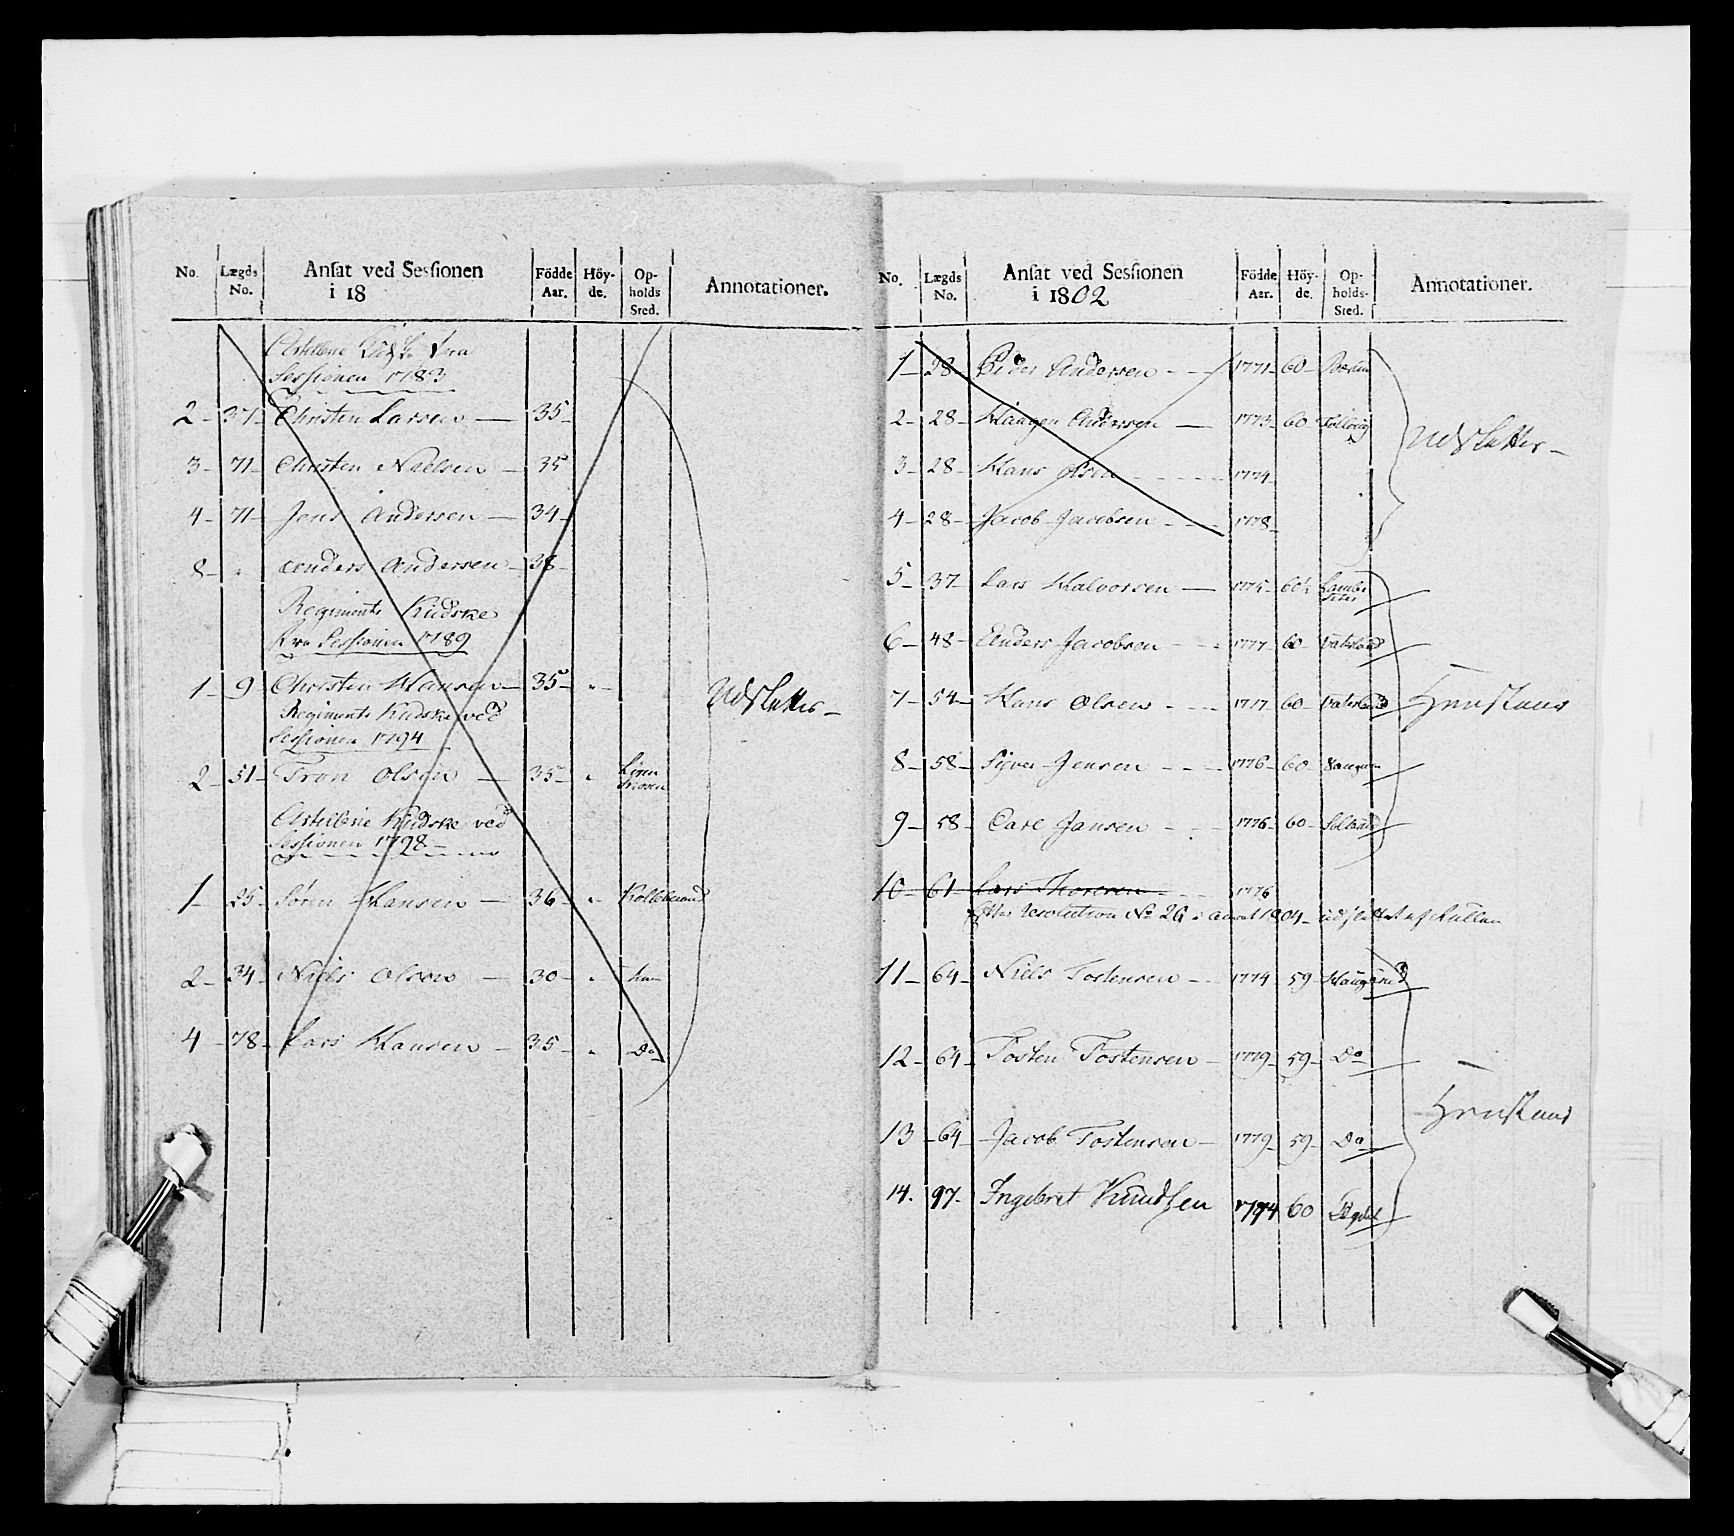 No. Lægds No. Ansat ved Sessionen i 18 Födde Aar. Höy- de. Op- holds Sted. Annotationer.
Artillerie Kudske fra
Sessionen 1783
2 - 37 - Christen Larsen - 35 -
3 - 71 - Christen Nielsen - 35
4 - 71 - Jens Andersen - 34 -
8 - " Anders Andersen - 38 -
Regiments Kudske
fra Sessionen 1789
1 - 9 Christen Hansen - 35 - " - Udslettes -
Regiments Kudske ved
Sessionen 1794
2 - 51 - Tron Olsen - 35 - "
Artillerie Kudske ved
Sessionen 1798 -
1 - 25 - Sören Hansen - 36 - "
2 - 34 - Niels Olsen - 30 - "
4 - 78 - Lars Hansen - 35 - " Do
No. Lægds No. Ansat ved Sessionen i 1802 Födde Aar. Höy- de. Op- holds- Sted. Annotationer.
1 - 28 - Peder Andersen - - - 1771 - 60 -
2 - 28 - Haagen Andersen - 1773 - 60 Udslettes -
3 - 28 - Hans Olsen - - - 1774
4 - 28 - Jacob Jacobsen - - - 1778 -
5 - 37 - Lars Halvorsen - 1775 - 60½
6 - 48 - Anders Jacobsen - - - 1777 - 60 Vaterland
7 - 54 - Hans Olsen - - - 1777 - 60 - Vaterland
8 - 58 - Syver Jensen - - - 1776 - 60 -
9 - 58 - Carl Jansen - - - 1776 - 60 -
10 - 61 - Lars Thoresen - - - 1776
Efter Resolution No 26 1804 - udslettet af Rullen
11 - 64 - Niels Tostensen - - 1774 59 -
12 - 64 - Tosten Tostensen - 1779 - 59 - Do
13 - 64 - Jacob Tostensen - 1779 - 59 - Do
14. 97. Ingebret Knudsen 1794 60